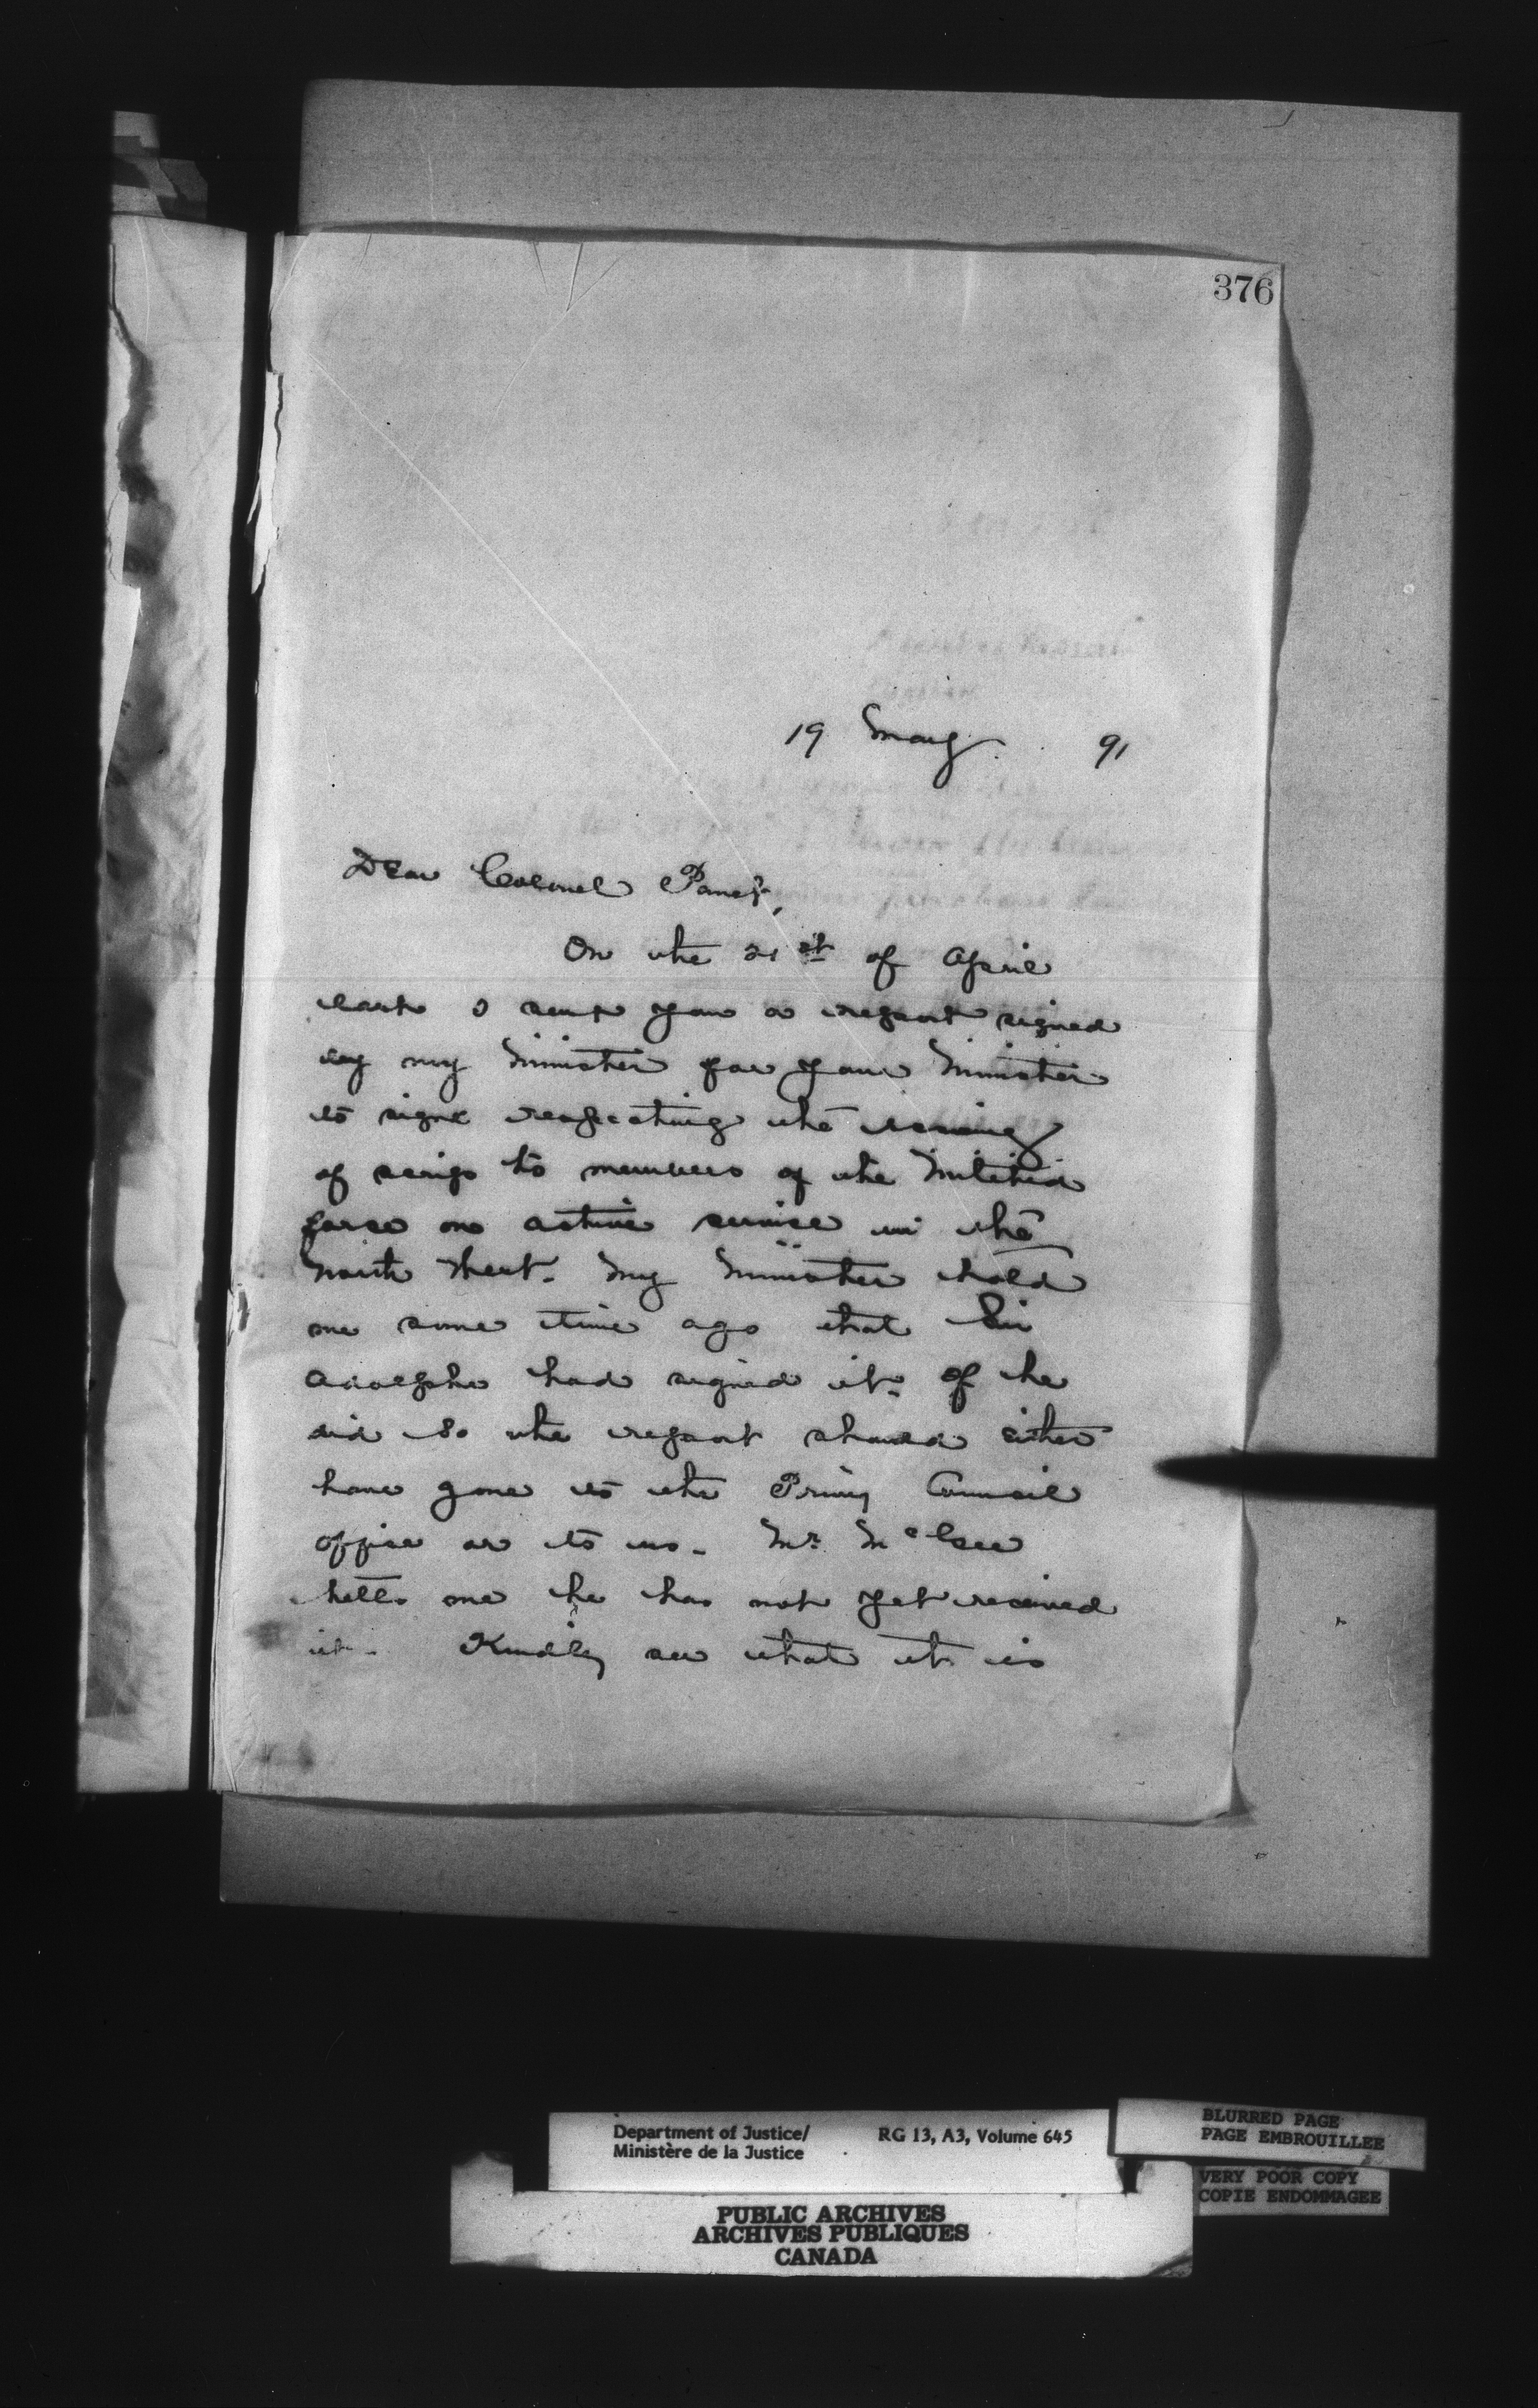 376
19 May 91
Dear Colonel Panet,
On the 21st of April
last I sent you a report signed
by my Minister for your Minister
to sign respecting the issuing
of scrip to members of the Militia
force on active service in the
North West. My Minister told
me some time ago that Sir
Adolphe had signed it. If he
did so the report should either
have gone to the Privy Council
office or to us. Mr. McGee
tells me he has not yet received
it. Kindly see what it is
Department of Justice/
Ministère de la Justice
RG 13, A3, Volume 645
BLURRED PAGE
PAGE EMBROUILLEE
VERY POOR COPY
COPIE ENDOMMAGEE
PUBLIC ARCHIVES
ARCHIVES PUBLIQUES
CANADA